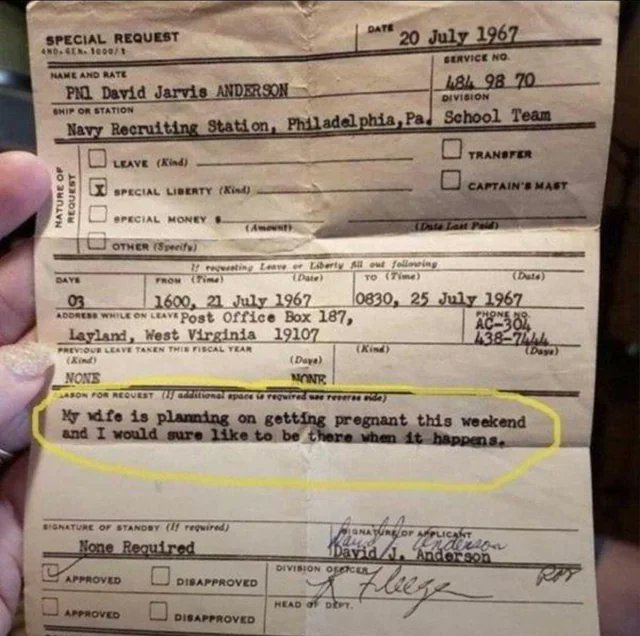 SPECIAL REQUEST
DATE 20 July 1967
SERVICE NO.
NAME AND RATE
PN1 David Jarvis ANDERSON
484 98 70
SHIP OR STATION
DIVISION
Navy Recruiting Station, Philadelphia, Pa. School Team
NATURE OF REQUEST
LEAVE (Kind)
TRANSFER
X SPECIAL LIBERTY (Kind)
CAPTAIN'S MAST
SPECIAL MONEY $
(Amount)
(Date Last Paid)
OTHER (Specify)
If requesting Leave or Liberty fill out following
DAYS
FROM (Time) (Date)
TO (Time) (Date)
03
1600, 21 July 1967
0830, 25 July 1967
ADDRESS WHILE ON LEAVE Post Office Box 187,
PHONE NO.
AC-304
Layland, West Virginia 19107
438-7444
PREVIOUS LEAVE TAKEN THIS FISCAL YEAR
(Kind) (Days)
(Kind) (Days)
NONE NONE
REASON FOR REQUEST (If additional space is required use reverse side)
My wife is planning on getting pregnant this weekend
and I would sure like to be there when it happens.
SIGNATURE OF STANDBY (If required)
SIGNATURE OF APPLICANT
None Required
David J. Anderson
David J. Anderson
APPROVED DISAPPROVED
DIVISION OFFICER
HEAD OF DEPT.
APPROVED DISAPPROVED